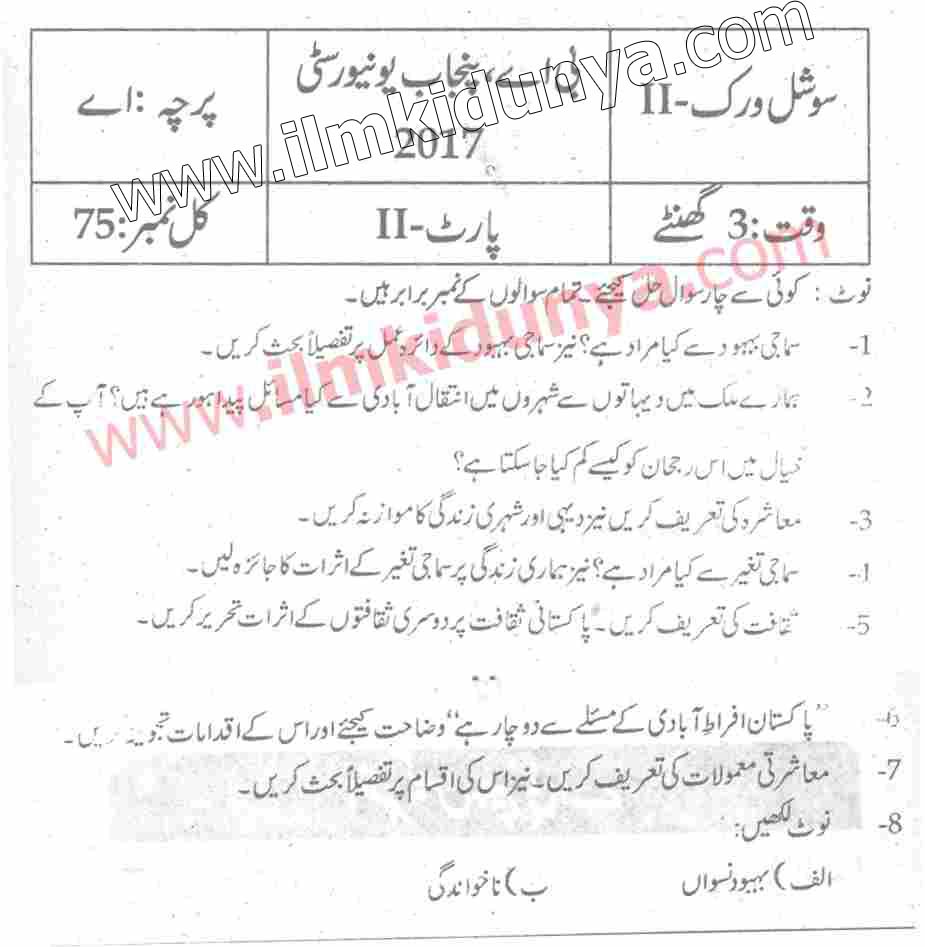 سوشل ورک-II
بی اے، پنجاب یونیورسٹی
2017
پرچہ :اے
وقت:3 گھنٹے
پارٹ-II
کل نمبر:75
www.ilmkidunya.com
www.ilmkidunya.com
نوٹ : کوئی سے چار سوال حل کیجئے۔ تمام سوالوں کے نمبر برابر ہیں۔
1- سماجی بہبود سے کیا مراد ہے؟ نیز سماجی بہبود کے دائرہ عمل پر تفصیلاً بحث کریں۔
2- ہمارے ملک میں دیہاتوں سے شہروں میں انتقال آبادی سے کیا مسائل پیدا ہو رہے ہیں؟ آپ کے
خیال میں اس رجحان کو کیسے کم کیا جا سکتا ہے؟
3- معاشرہ کی تعریف کریں نیز دیہی اور شہری زندگی کا موازنہ کریں۔
سماجی تغیر سے کیا مراد ہے؟ نیز ہماری زندگی پر سماجی تغیر کے اثرات کا جائزہ لیں۔
5- ثقافت کی تعریف کریں۔ پاکستانی ثقافت پر دوسری ثقافتوں کے اثرات تحریر کریں۔
6- ”پاکستان افراطِ آبادی کے مسئلے سے دوچار ہے“ وضاحت کیجئے اور اس کے اقدامات
7- معاشرتی معمولات کی تعریف کریں۔ نیز اس کی اقسام پر تفصیلاً بحث کریں۔
8- نوٹ لکھیں:
الف) بہبود نسواں ب) ناخواندگی